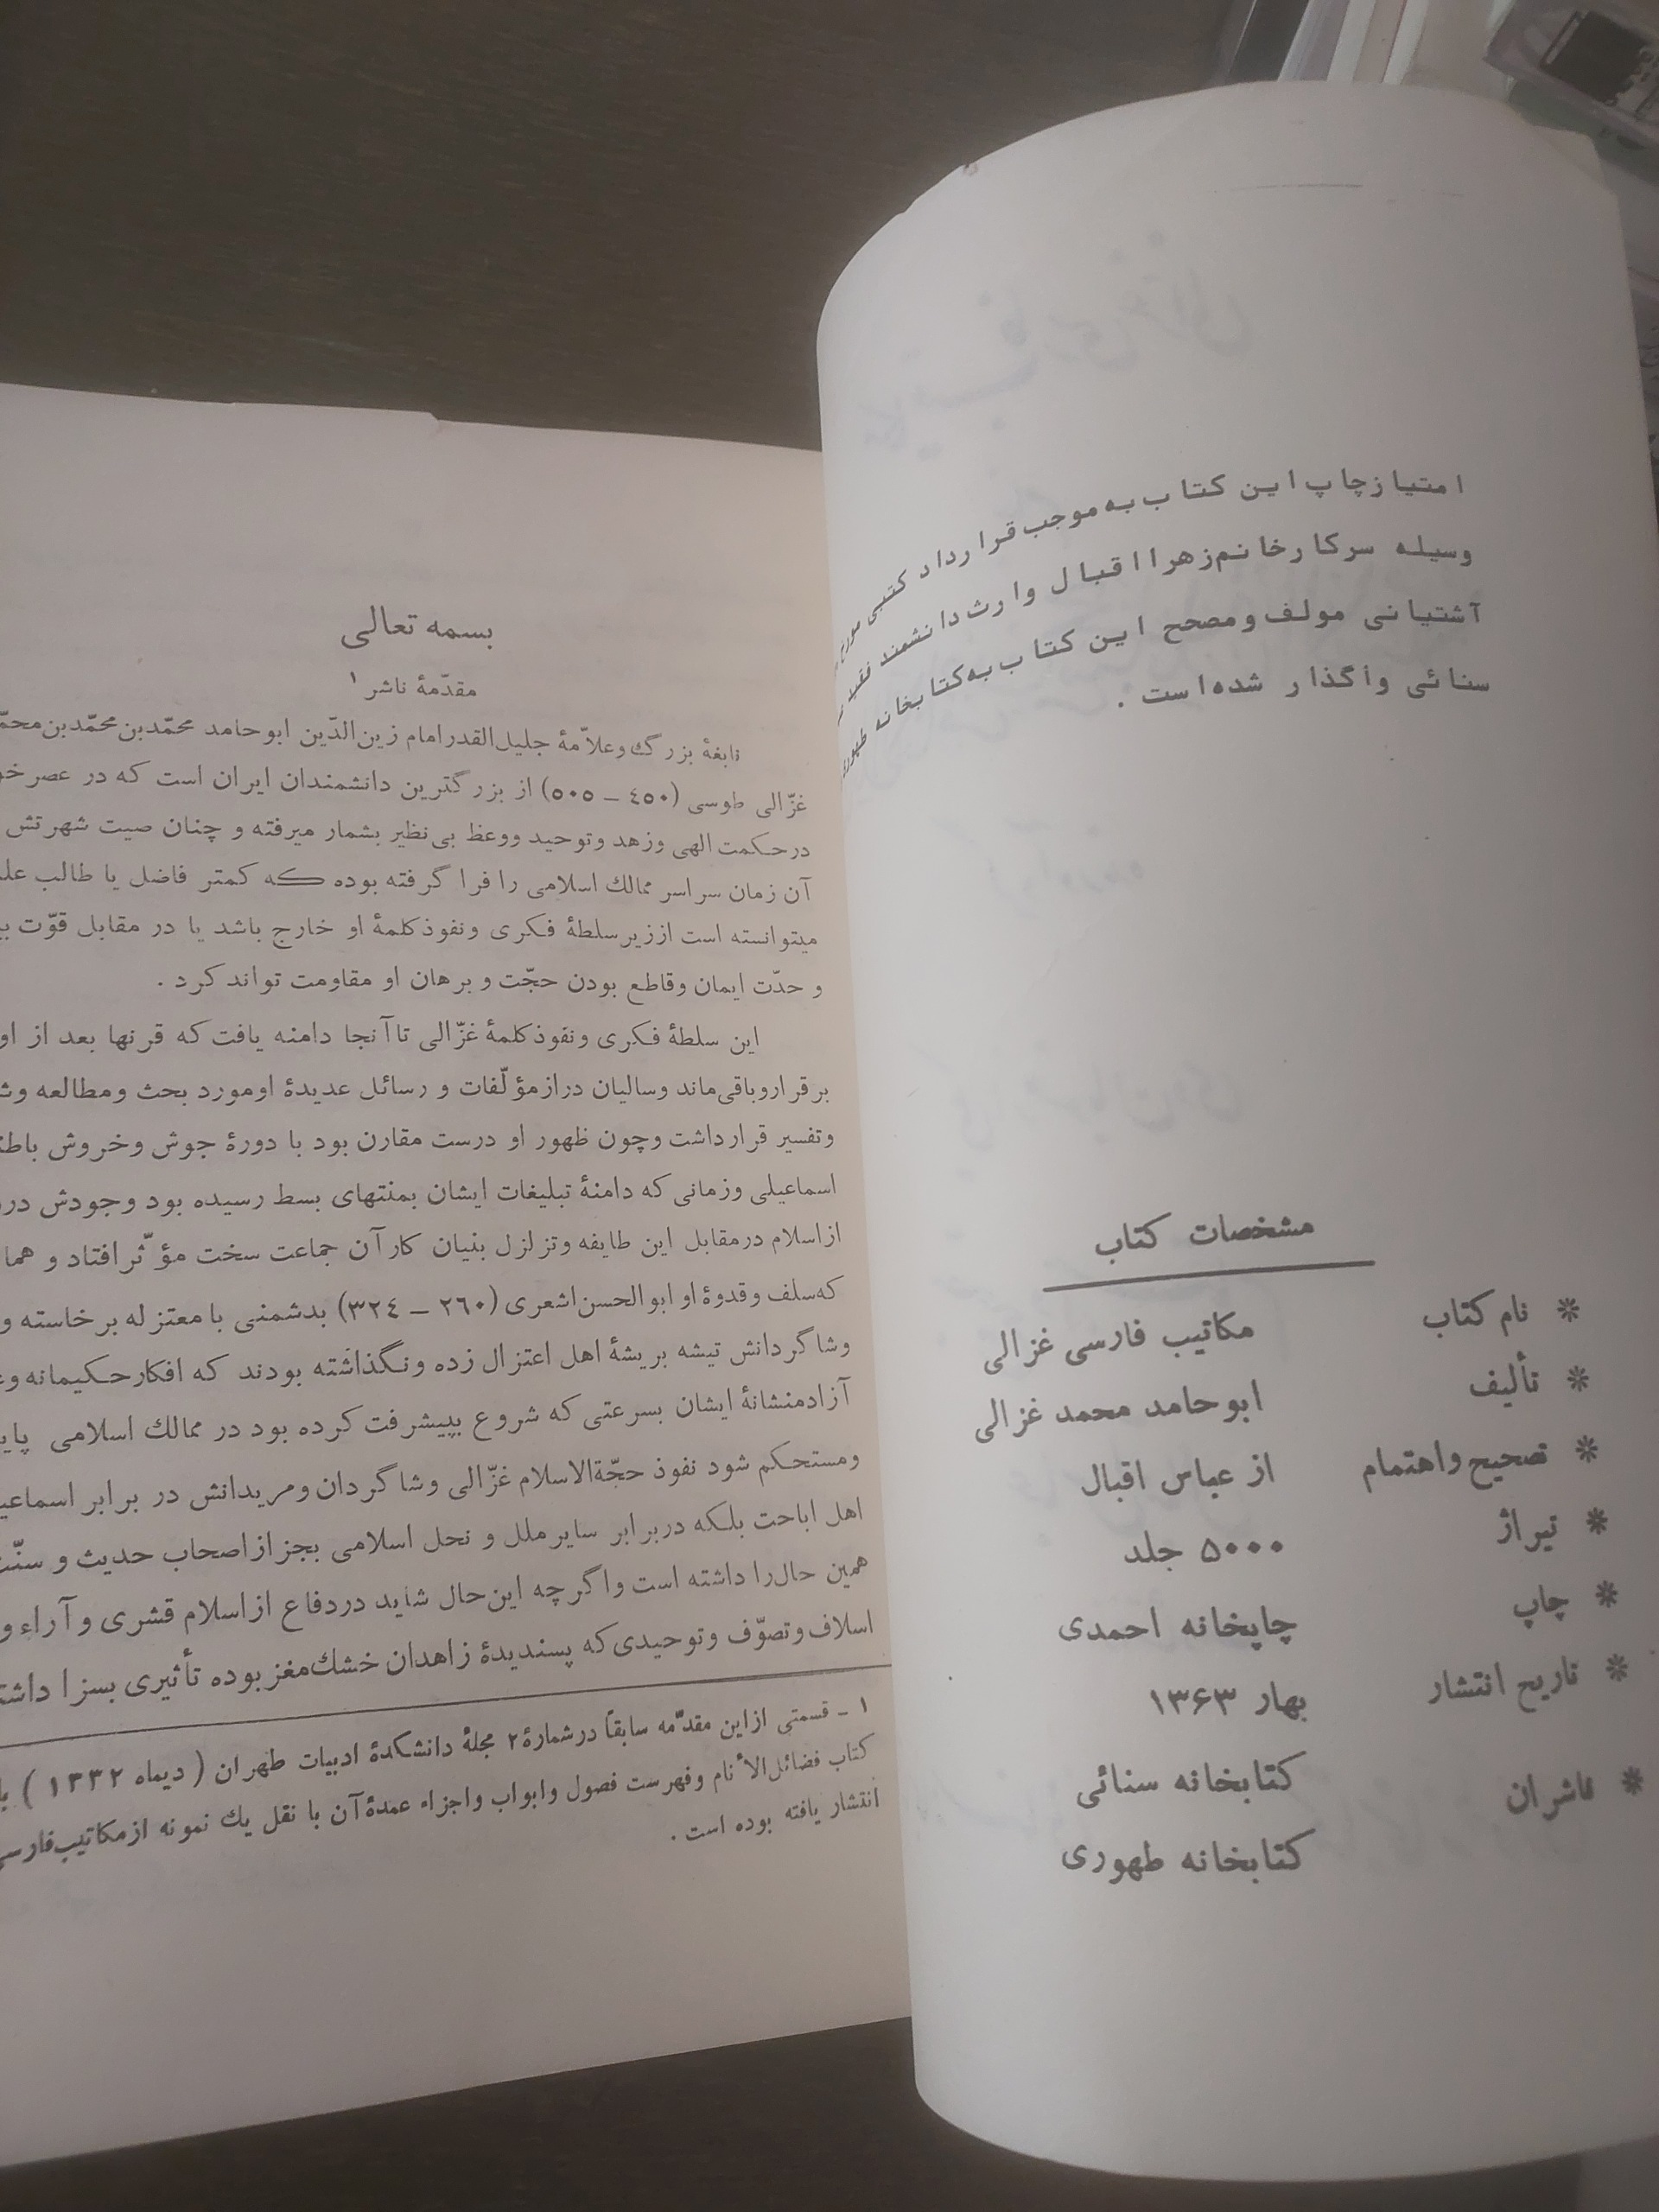 امتیاز چاپ این کتاب به موجب قرارداد کتبی
وسیله سرکار خانم زهرا اقبال وارث دانشمند فقید
آشتیانی مولف و مصحح این کتاب به کتابخانه
سنائی واگذار شده است .
مشخصات کتاب
* نام کتاب مکاتیب فارسی غزالی
* تألیف ابوحامد محمد غزالی
* تصحیح و اهتمام از عباس اقبال
* تیراژ ۵۰۰۰ جلد
* چاپ چاپخانه احمدی
* تاریخ انتشار بهار ۱۳۶۳
* ناشران کتابخانه سنائی
کتابخانه طهوری
بسمه تعالی
مقدّمهٔ ناشر ۱
نابغهٔ بزرگ و علاّمهٔ جلیل‌القدر امام زین‌الدّین ابوحامد محمّدبن‌محمّدبن
غزّالی طوسی (٤٥٠ – ٥٠٥) از بزرگترین دانشمندان ایران است که در عصر
در حکمت الهی و زهد و توحید و وعظ بی‌نظیر بشمار میرفته و چنان صیت شهرتش
آن زمان سراسر ممالك اسلامی را فرا گرفته بوده که کمتر فاضل یا طالب
میتوانسته است از زیر سلطهٔ فکری و نفوذ کلمهٔ او خارج باشد یا در مقابل قوّت
و حدّت ایمان و قاطع بودن حجّت و برهان او مقاومت تواند کرد .
این سلطهٔ فکری و نفوذ کلمهٔ غزّالی تا آنجا دامنه یافت که قرنها بعد از او
برقرار و باقی‌ماند و سالیان دراز مؤلّفات و رسائل عدیدهٔ او مورد بحث و مطالعه
و تفسیر قرار داشت و چون ظهور او درست مقارن بود با دورهٔ جوش و خروش
اسماعیلی و زمانی که دامنهٔ تبلیغات ایشان بمنتهای بسط رسیده بود وجودش
از اسلام در مقابل این طایفه و تزلزل بنیان کار آن جماعت سخت مؤثّر افتاد و
که سلف و قدوهٔ او ابوالحسن اشعری (٢٦٠ – ٣٢٤) بدشمنی با معتزله برخاسته و
و شاگردانش تیشه بریشهٔ اهل اعتزال زده و نگذاشته بودند که افکار حکیمانه
آزادمنشانهٔ ایشان بسرعتی که شروع بپیشرفت کرده بود در ممالك اسلامی
و مستحکم شود نفوذ حجّةالاسلام غزّالی و شاگردان و مریدانش در برابر
اهل اباحت بلکه در برابر سایر ملل و نحل اسلامی بجز از اصحاب حدیث و
همین حال را داشته است و اگر چه این حال شاید در دفاع از اسلام قشری و آراء و
اسلاف و تصوّف و توحیدی که پسندیدهٔ زاهدان خشك‌مغز بوده تأثیری بسزا
۱ – قسمتی از این مقدّمه سابقاً در شمارهٔ ۲ مجلهٔ دانشکدهٔ ادبیات طهران ( دیماه ۱۳۳۲ )
کتاب فضائل‌الأنام و فهرست فصول و ابواب و اجزاء عمدهٔ آن با نقل یك نمونه از مکاتیب
انتشار یافته بوده است .